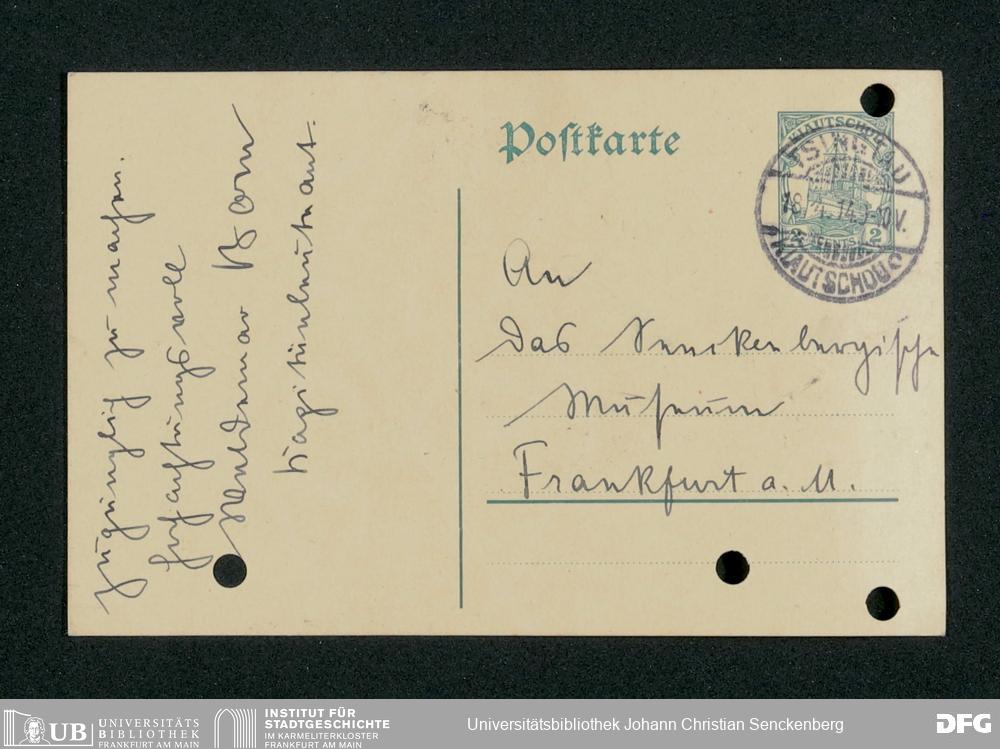 Postkarte
KIAUTSCHOU
2 CENTS 2
TSINGTAU
18/4.14.9-10V.
KIAUTSCHOU
An
Das Senckenbergische
Museum
Frankfurt a. M.
zugänglich zu machen.
Hochachtungsvoll
Kapitänleutnant.
UB
UNIVERSITÄTS
BIBLIOTHEK
FRANKFURT AM MAIN
INSTITUT FÜR
STADTGESCHICHTE
IM KARMELITERKLOSTER
FRANKFURT AM MAIN
Universitätsbibliothek Johann Christian Senckenberg
DFG